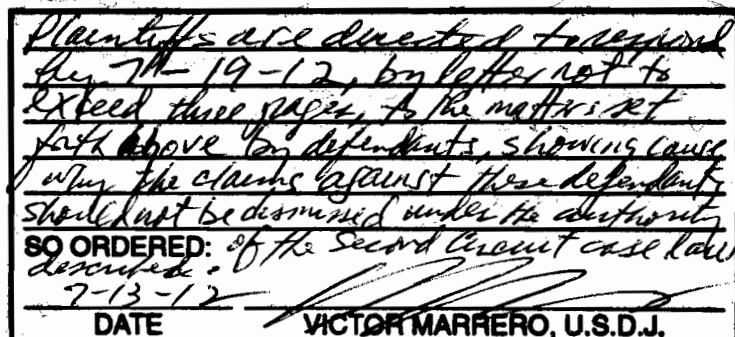 Plaintiffs are directed to respond
by 7-19-12, by letter not to
exceed three pages, to the matters set
forth above by defendants, showing cause
why the claims against these defendants
should not be dismissed under the authority
SO ORDERED: of the Second Circuit case law
described.
7-13-12
DATE VICTOR MARRERO, U.S.D.J.